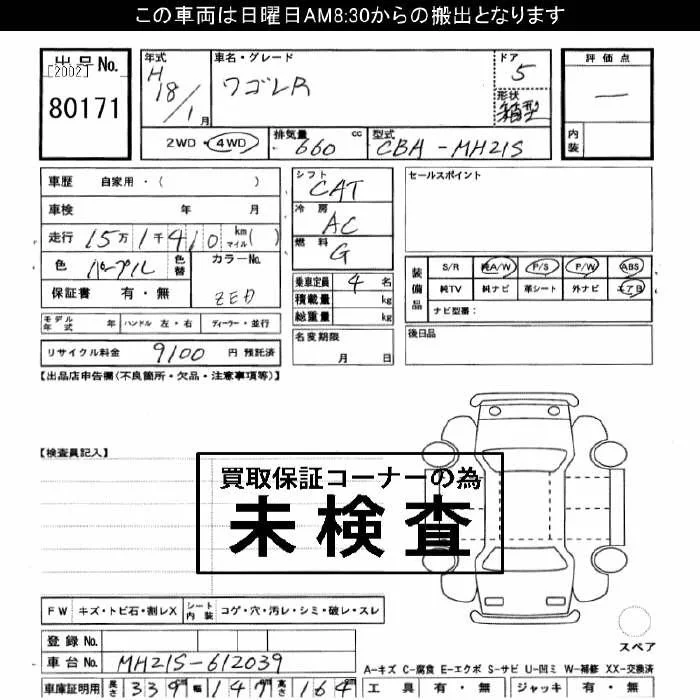 この車両は日曜日AM8:30からの搬出となります
出品No.
[2002]
80171
年式
H
18/1月
車名・グレード
ワゴンR
ドア
5
形状
箱型
評価点
—
内装
2WD・4WD
排気量
660 cc
型式
CBA-MH21S
車歴 自家用・( )
車検 年 月
走行 15万1千410 km マイル( )
色 パープル 色替
カラーNo.
ZED
保証書 有・無
シフト
CAT
冷房
AC
燃料
G
乗車定員 4 名
積載量 kg
総重量 kg
セールスポイント
装備品
S/R 純A/W P/S P/W ABS
純TV 純ナビ 革シート 外ナビ エアB
ナビ型番:
モデル年式 年 ハンドル 左・右 ディーラー・並行
名変期限
月 日
後日品
リサイクル料金 9100 円 預託済
【出品店申告欄(不良箇所・欠品・注意事項等)】
【検査員記入】
買取保証コーナーの為
未検査
FW キズ・トビ石・割レX シート内装 コゲ・穴・汚レ・シミ・破レ・スレ
スペア
登録No.
車台No. MH21S-612039
A-キズ C-腐食 E-エクボ S-サビ U-凹ミ W-補修 XX-交換済
車庫証明用 長さ 339 幅 147 高さ 164
工具 有・無 ジャッキ 有・無